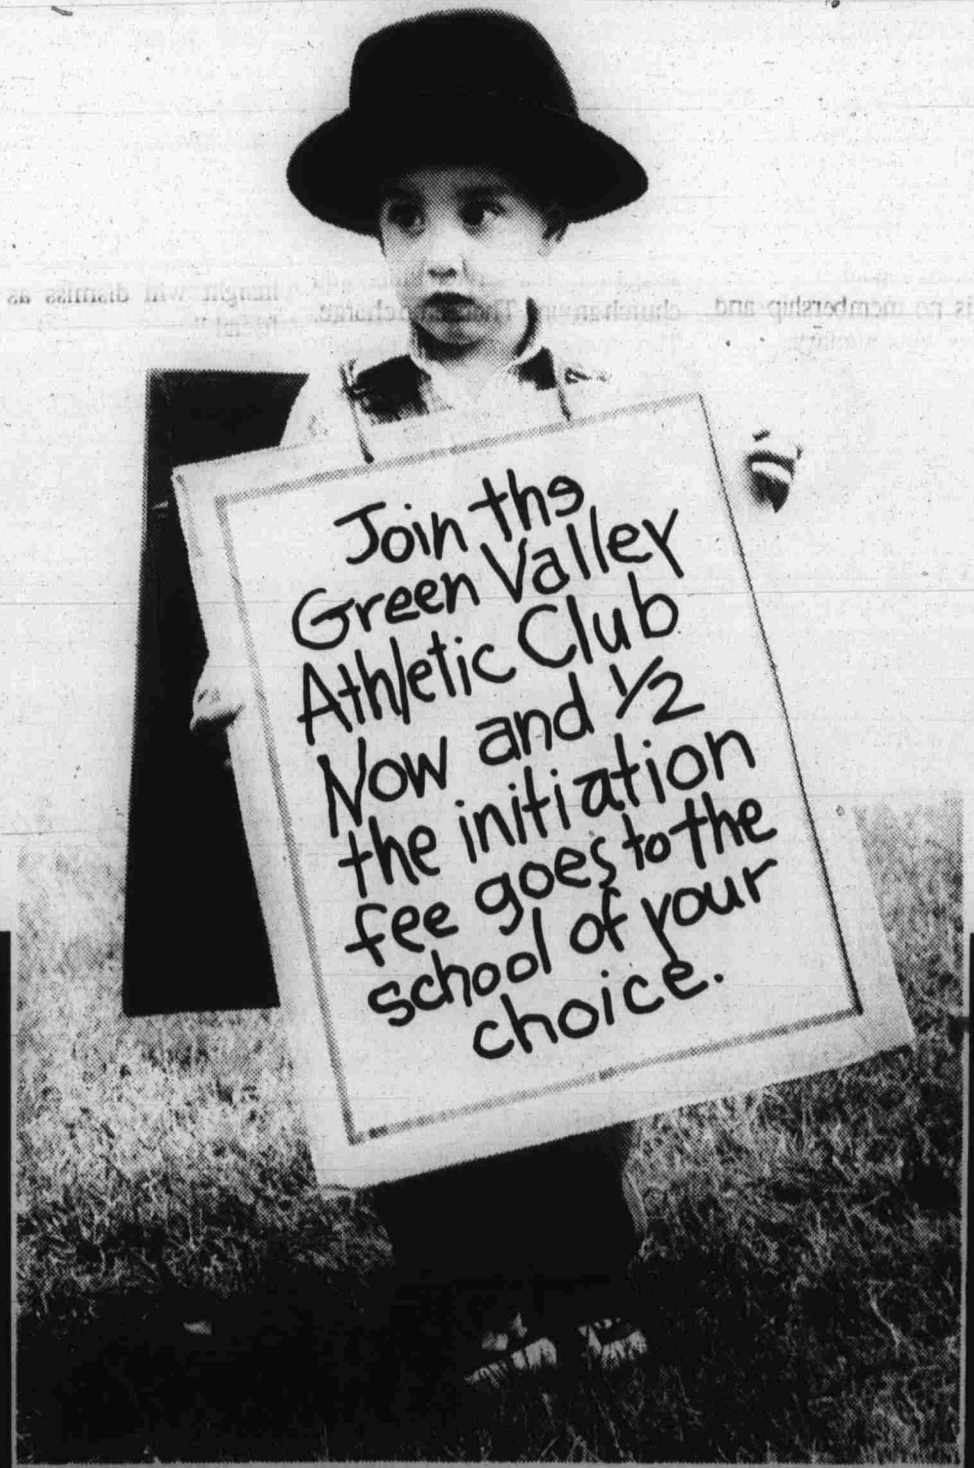 Join the
Green Valley
Athletic Club
Now and 1/2
the initiation
fee goes to the
school of your
choice.